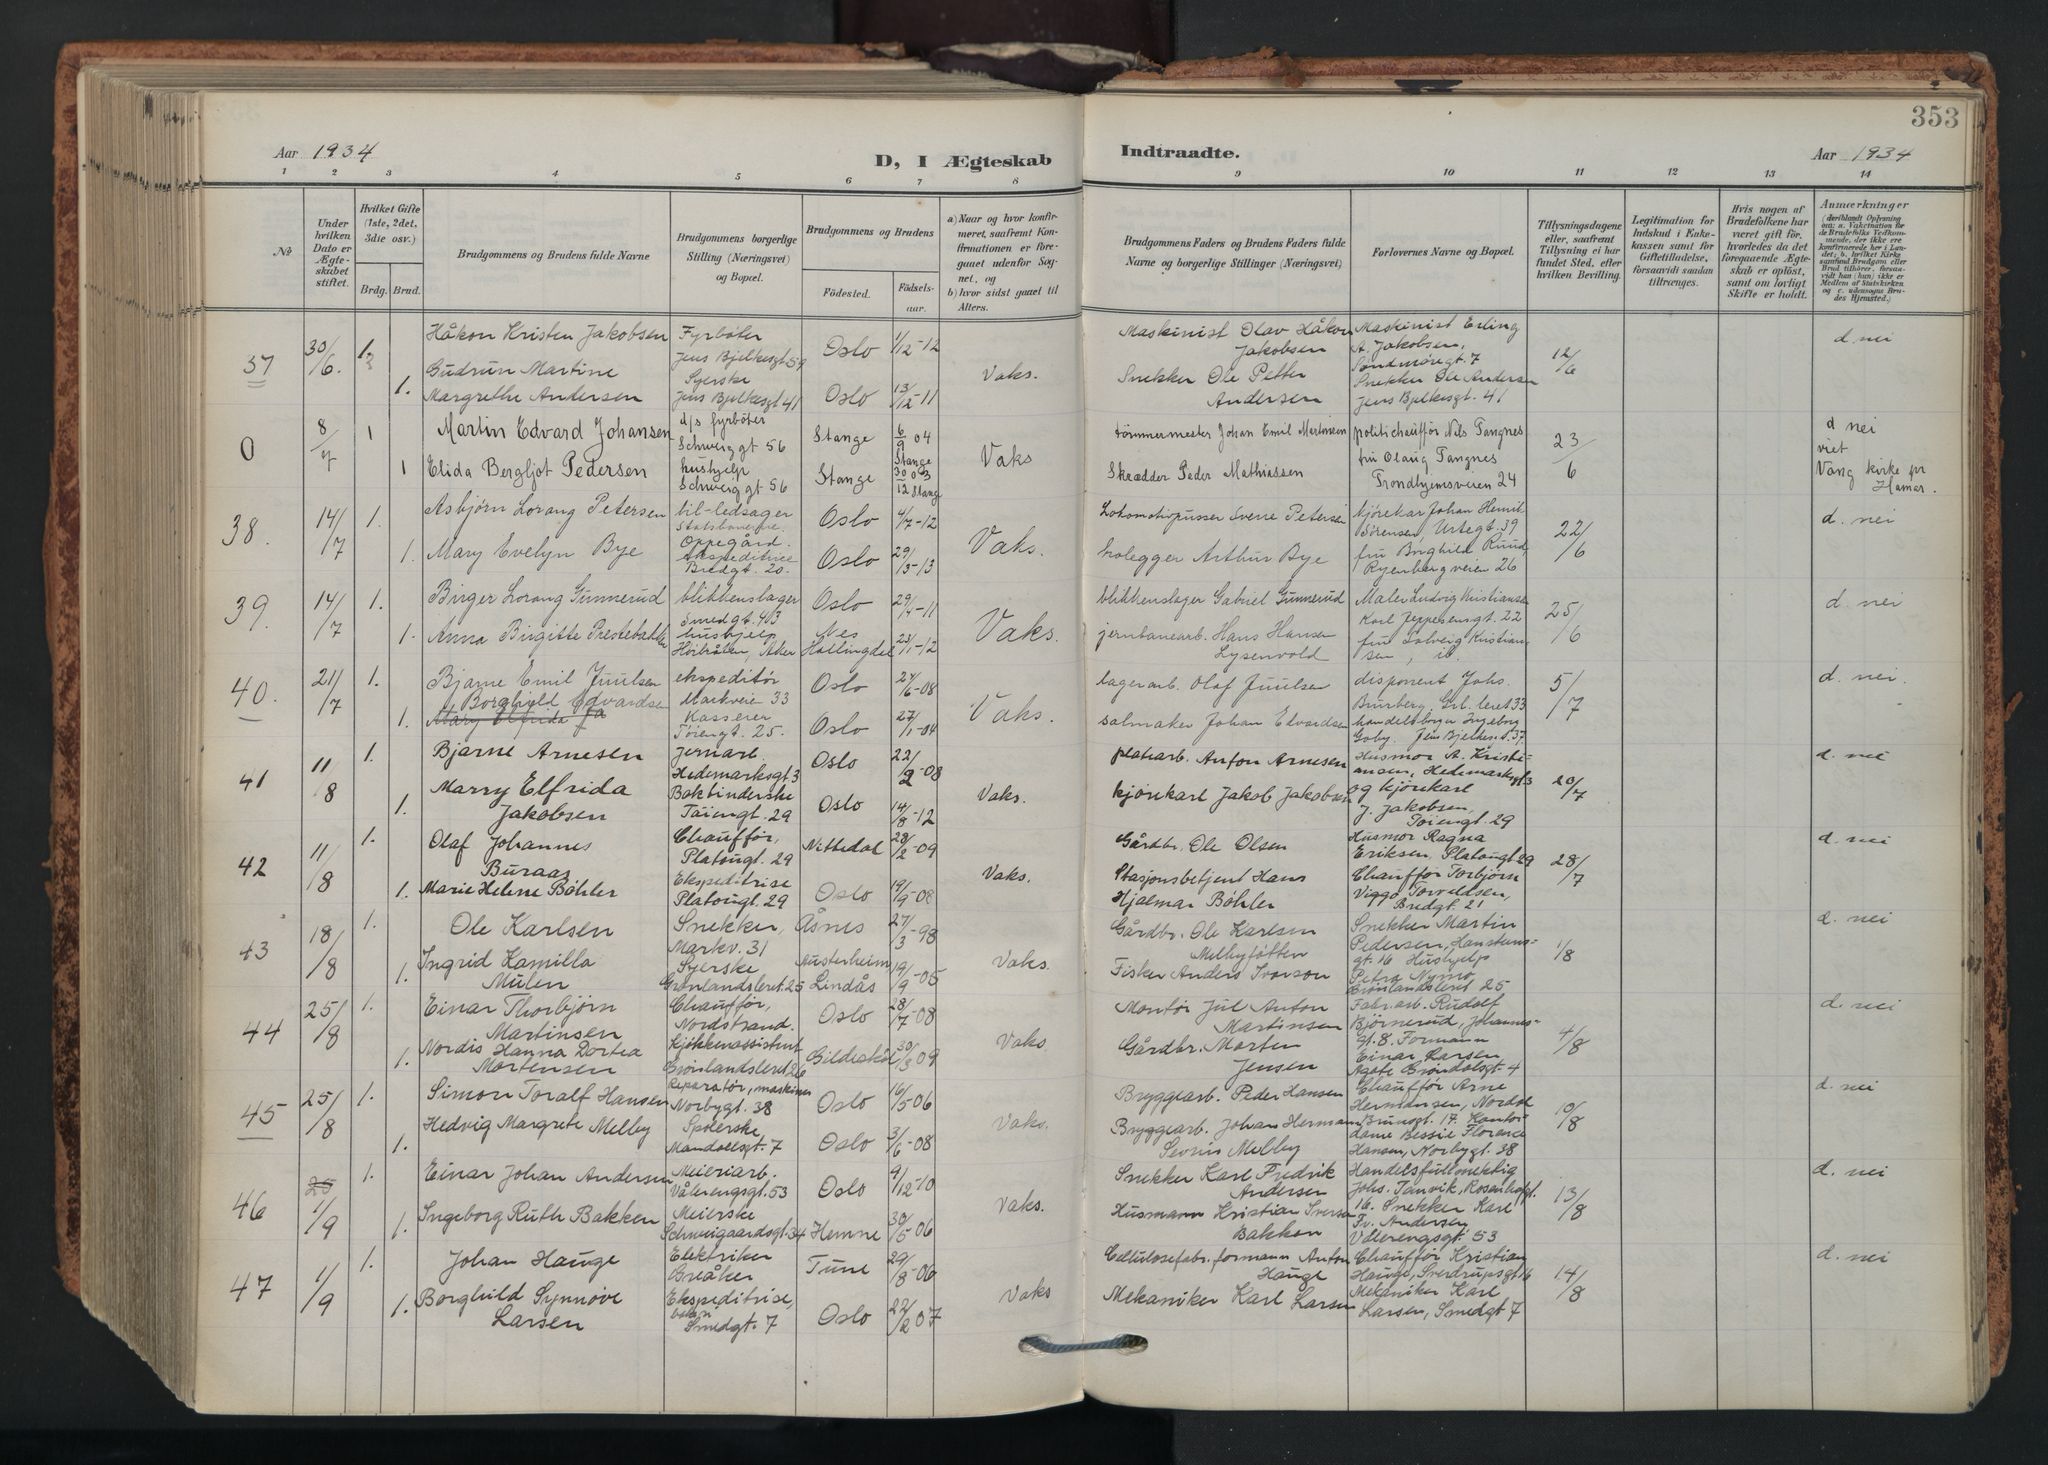 353
Aar 1934
D, I Ægteskab
Indtraadte.
Aar 1934
1 2 3 4 5 6 7 8 9 10 11 12 13 14
No
Under hvilken Dato er Ægteskabet stiftet.
Hvilket Gifte (1ste, 2det, 3die osv.)
Brdg. Brud.
Brudgommens og Brudens fulde Navne
Brudgommens borgerlige Stilling (Næringsvei) og Bopæl.
Brudgommens og Brudens
Födested.
Födselsaar.
a) Naar og hvor konfirmeret, saafremt Konfirmationen er foregaaet udenfor Sognet, og
b) hvor sidst gaaet til Alters.
Brudgommens Faders og Brudens Faders fulde Navne og borgerlige Stillinger (Næringsvei)
Forlovernes Navne og Bopæl.
Tillysningsdagene eller, saafremt Tillysning ei har fundet Sted, efter hvilken Bevilling.
Legitimation for Indskud i Enkekassen samt for Giftetilladelse, forsaavidt saadan tiltrænges.
Hvis nogen af Brudefolkene har været gift för, hvorledes da det foregaaende Ægteskab er oplöst, samt om lovligt Skifte er holdt.
Anmærkninger
37 30/6. 1. Håkon Kristen Jakobsen Fyrbøter Jens Bjelkesgt 59 Oslo 1/12-12 Vaks. Maskinist Olav Håkon Jakobsen Maskinist Erling A. Jakobsen, Søndmøregt 7 12/6 d nei
1. Gudrun Martine Margrethe Andersen Syerske Jens Bjelkesgt 41 Oslo 13/12-11 Snekker Ole Petter Andersen Snekker Ole Andersen Jens Bjelkesgt. 41
0 8/7 1 Martin Edvard Johansen d/s fyrbøter Schweiggt 56 Stange 6/9 04 Stange Vaks Tömmermester Johan Emil Martinsen politichauffør Nils Tangnes 23/6 d nei viet Vang kirke pr Hamar.
1 Elida Bergljot Pedersen hushjelp Schweiggt 56 Stange 30/12 03 Stange Skrædder Peder Mathiassen fru Olaug Tangnes Trondhjemsveien 24
38. 14/7 1. Asbjørn Lorang Petersen bil-ledsager Oppegård. Oslo 4/7-12 Vaks. Lokomotivpusser Sverre Petersen kjørekar Johan Henrik Sørensen, Urtegt. 39 22/6 d. nei
1. Mary Evelyn Bye ekspeditrice Bredgt. 20. Oslo 29/3-13 Arthur Bye fru Borghild Ruud, Ryenbergveien 26
39. 14/7 1. Birger Lorang Gunnerud blikkenslager Smedgt. 43 Oslo 29/4-11 Vaks. blikkenslager Gabriel Gunnerud Maler Ludvig Kristiansen Karl Jeppesensgt. 22 25/6 d. nei
1. Anna Birgitte Prestebakke hushjelp Høibråten, Aker Nes Hallingdal 23/1-12 jernbanearb. Hans Hansen Lysenvold fru Solveig Kristiansen, ib.
40. 21/7 1. Bjarne Emil Juulsen ekspeditør Markveie 33 Oslo 27/6-08 Vaks. lagerarb. Olaf Juulsen disponent Johs. Brurberg, Grl. leret 33 5/7 d. nei.
1. Borghild Edvardsen Mary Elfrida Ja Kasserer Tøiengt. 25. Oslo 27/1-04 salmaker Johan Edvardsen handelsborger Ingeborg Goby. Jens Bjelkesgt. 37.
41 11/8 1. Bjarne Arnesen Jernarb. Hedemarksgt 3 Oslo 22/2-08 Vaks. platearb. Anton Arnesen Husmor A. Kristiansen, Hedemarksgt 3 20/7 d. nei
1. Marry Elfrida Jakobsen Bokbinderske Tøiengt. 29 Oslo 14/8-12 kjørekarl Jakob Jakobsen og kjørekarl J. Jakobsen, Tøiengt. 29
42 11/8 1. Olaf Johannes Buraas Chauffør, Platougt. 29 Nittedal 28/2-09 Vaks. Gårdbr. Ole Olsen Husmor Ragna Eriksen, Platougt 29 28/7 d. nei
1. Marie Helene Bøhler Ekspeditrise Platougt. 29 Oslo 19/9-08 Stasjonsbetjent Hans Hjalmar Bøhler Chauffør Torbjørn Viggo Torvildsen, Bredgt. 21
43 18/8 1. Ole Karlsen Snekker, Markv. 31 Åsnes 27/3-98 Vaks. Gårdbr. Ole Karlsen Melbyføtten Snekker Martin Pedersen, Hanstensgt. 16 1/8 d. nei
1. Ingrid Kamilla Mulen Syerske Grønlandsleret 25 Austerheim Lindås 19/9-05 Fisker Anders Ivarson Hushjelp Petra Nymo Grønlandsleret 25
44 25/8 1. Einar Thorbjørn Martinsen Chauffør, Nordstrand. Oslo 28/7-08 Vaks Montør Jul Anton Martinsen Fabr. arb. Rudolf Bjørnerud, Johannesgt. 8. 4/8 d. nei
1. Nordis Hanna Dortea Mortensen Kjøkkenassistent Grønlandsleret 26 Gildeskål 30/3 09 Gårdbr. Morten Jensen Formann Einar Larsen, Agate Grøndalsgt 4
45 25/8 1. Simon Toralf Hansen Reparatør, maskiner Norbygt. 38 Oslo 16/5-06 Vaks. Bryggearb. Peder Hansen Chauffør Arne Hermansen, Nordal Brunsgt. 17. 10/8 d. nei
1. Hedvig Margrete Melby Spolerske Mandalsgt. 7 Oslo 3/6-08 Bryggearb. Johan Hermann Sevrin Melby Kontordame Bessie Florence Hansen, Norbygt. 38
46 25 1/9 1. Einar Johan Andersen Meieriarb. Vålerengsgt. 53 Oslo 9/12-10 Vaks. Snekker Karl Fredrik Andersen Handelsfullmektig Johs. Tanvik, Rosenhofgt. 16. 13/8 d. nei
1. Ingeborg Ruth Bakken Meierske Schweigaardsgt. 34 Hemne 30/5-06 Husmann Kristian Iversen Bakken Snekker Karl Fr. Andersen Vålerengsgt. 53
47 1/9 1. Johan Hauge Elektriker Greåker Tune 29/8-06 Vaks Cellulosefabr. formann Anton Hauge Chauffør Kristian Hauge, Sverdrupsgt 16 14/8 d. nei
1. Borghild Synnøve Larsen Ekspeditrise, Smedgt. 7 Oslo 22/2 07 Mekaniker Karl Larsen Mekaniker Karl Larsen, Smedgt 7